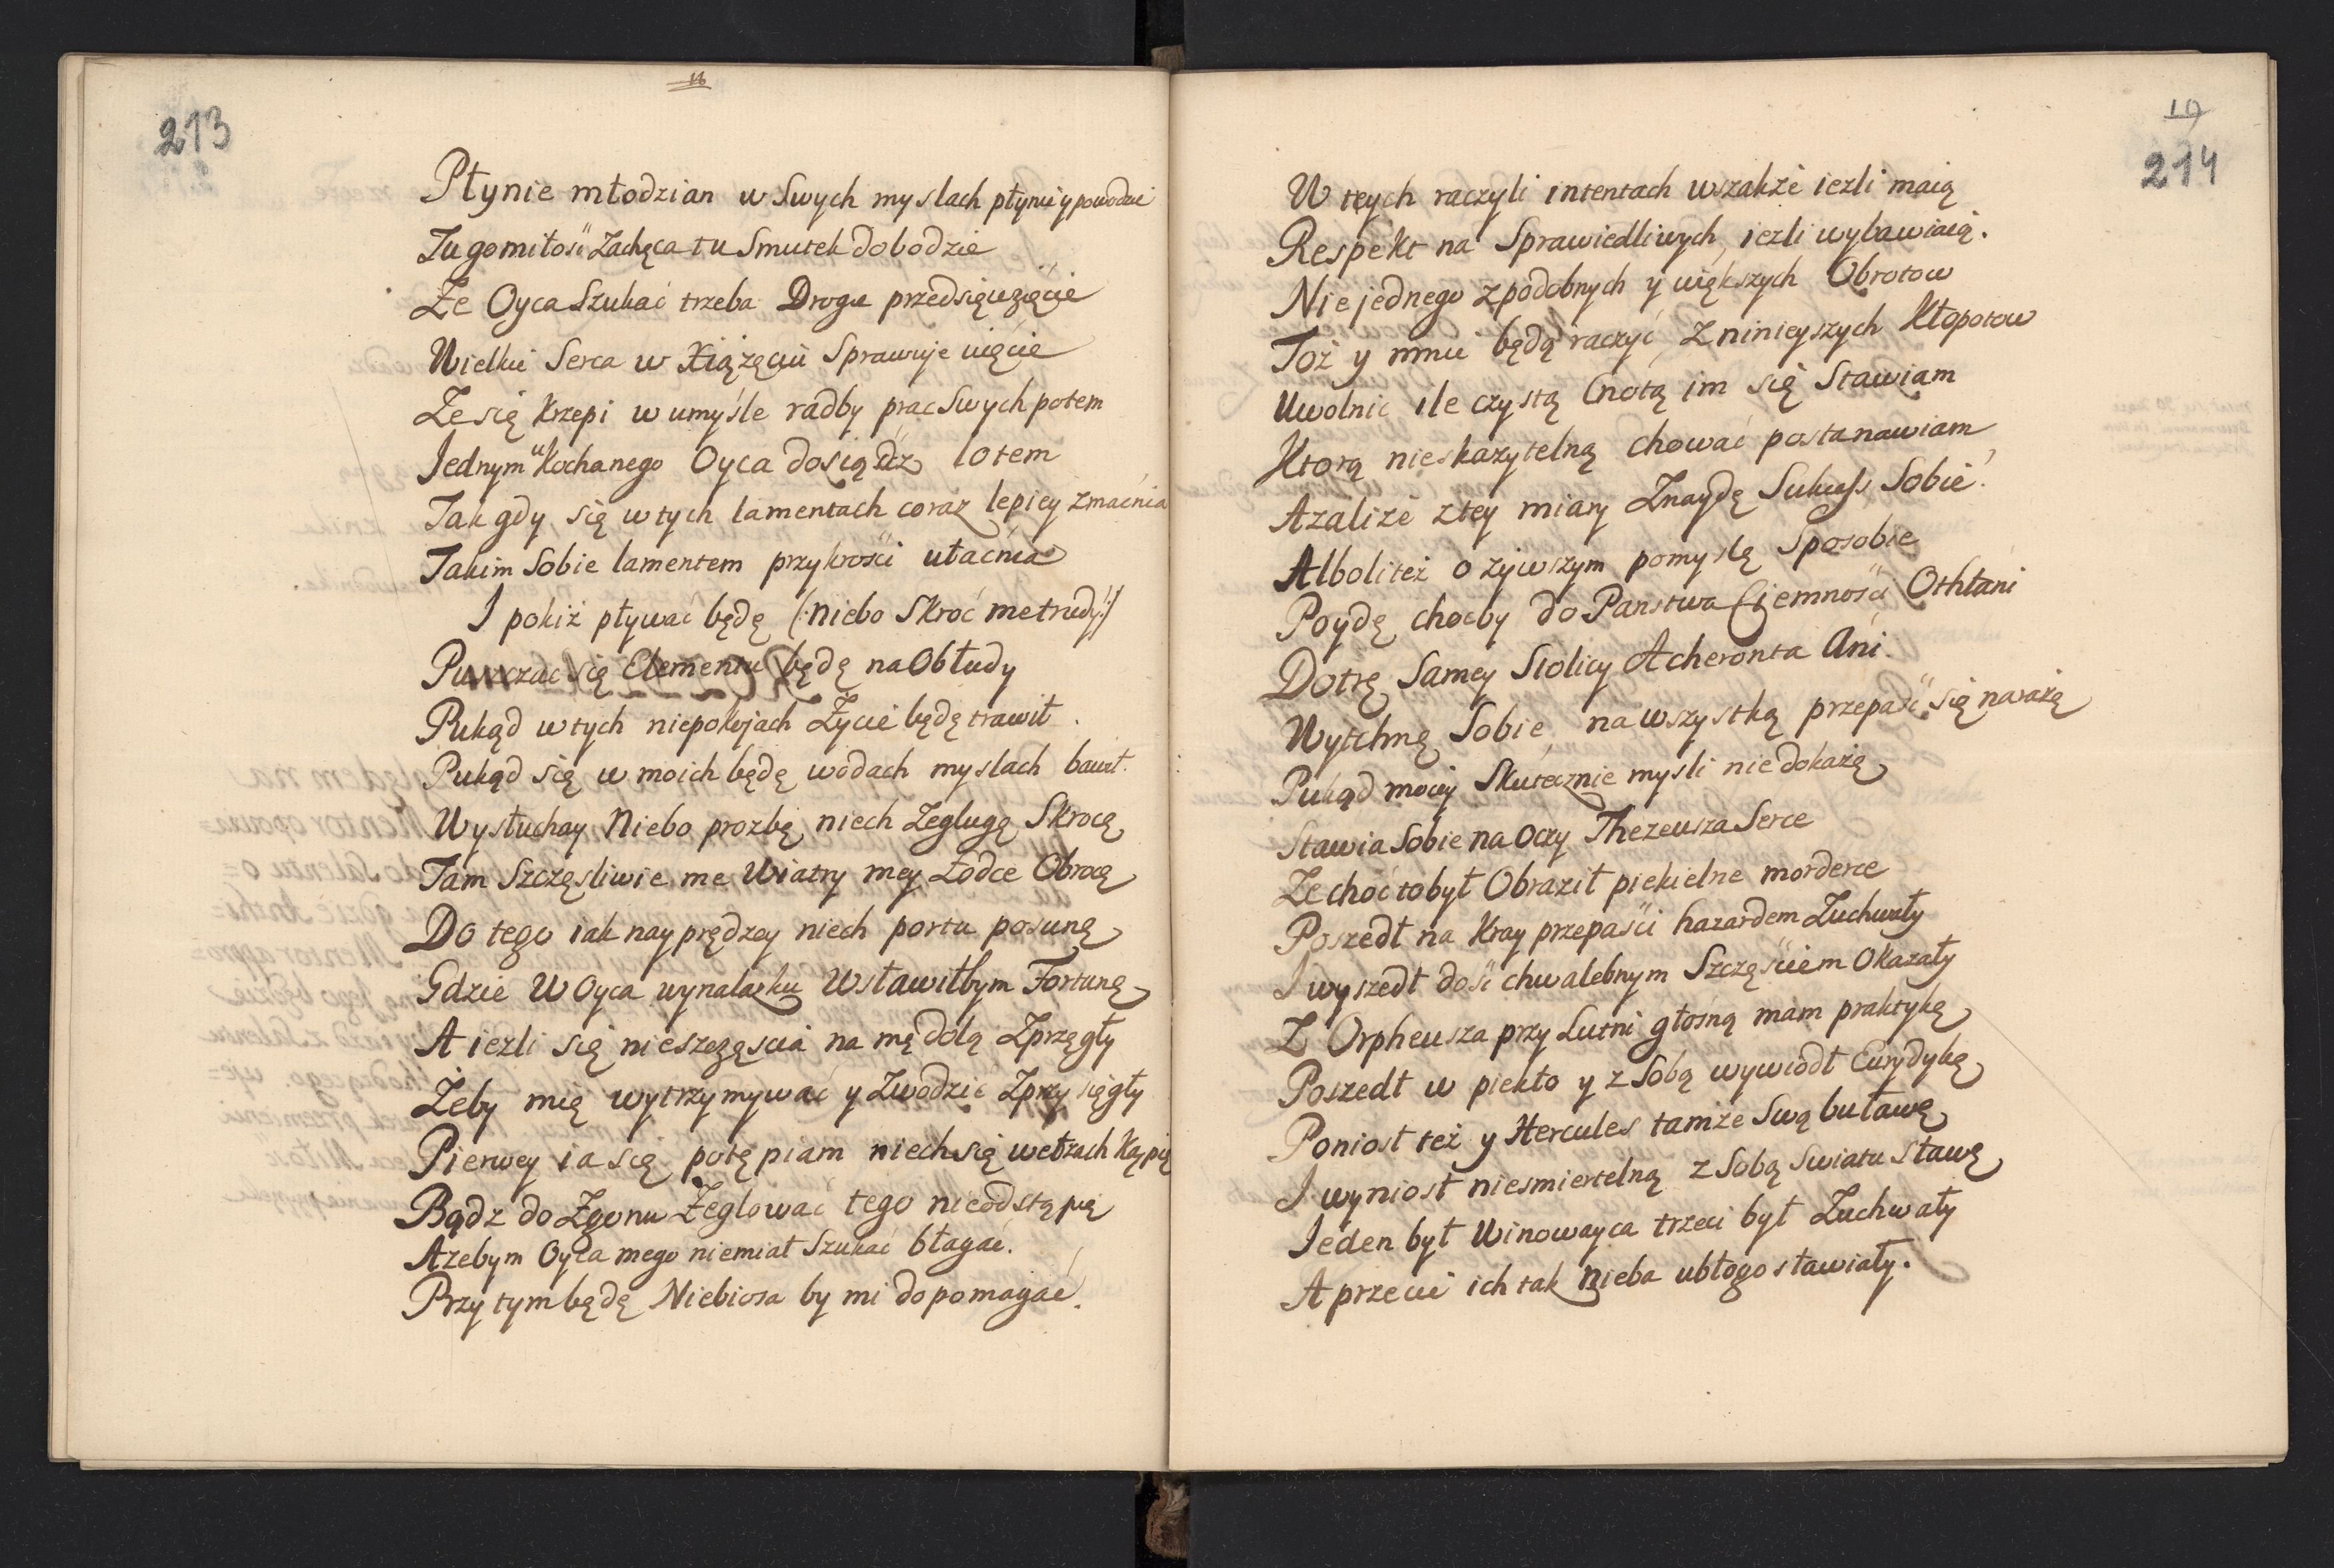 213
Płynie młodzian w Swych myslach płynie y powodzie
Tu go miłość Zachęca tu Smutek dobodzie
Ze Oyca Szukać trzeba Droga przedsięwzięcie
Wielkie Serca w Xiążęciu Sprawuje więcie
Ze się Krzepi w umyśle radby prac Swych potem
Jednym Kochanego Oyca dosiądź lotem
Tak gdy się w tych lamentach coraz lepiey zmacnia
Takim Sobie lamentem przykrości ułacnia
I pokiż pływać będę (: niebo Skroć me trudy :)
Puszczac się Elementu będę na Obłudy
Pukąd w tych niepokojach Życie będę trawił.
Pukąd się w moich będę wodach myslach bawił.
Wysłuchay Niebo prozbę, niech Zeglugę Skrocą
Tam Szczęsliwie me Wiatry mey Łodce Obrocą
Do tego iak nayprędzey niech portu posuną
Gdzie W Oyca wynalasku Wstawiłbym Fortuną
A iezli się nieszczęscia na mę dolą Zprzęgły
Żeby mię wytrzymywać y Zwodzić Zprzysięgły
Pierwey ia się potępiam niech się wetrzach Kąpię
Bądz do Zgonu Żeglować tego nieodstąpię
Azebym Oyca mego niemiał Szukać błagać.
Przy tym będę Niebiosa by mi dopomagać.
19
214
W tych raczyli intentach wszakże iezli maią
Respekt na Sprawiedliwych, iezli wybawiaią.
Nie jednego z podobnych y większych Obrotow
Toż y mnie będą raczyć, z ninieyszych Kłopotow
Uwolnic ile czystą Cnotą im się Stawiam
Ktorą nieskazytelną chować postanawiam
Azaliże z tey miary Znaydę Sukcess Sobie?
Alboliteż o zywszym pomyslę Sposobie
Poydę choćby do Panstwa Ciemności Othłani
Dotrę Samey Stolicy Acheronta Ani.
Wytchnę Sobie, na wszystką przepaść się naważę
Pukąd moiey Skutecznie mysli nie dokażę
Stawia Sobie na Oczy Thezeusza Serce
Ze choć to był Obraził piekielne morderce
Poszedł na Kray przepaści hazardem Zuchwały
I wyszedł dość chwalebnym Szczęściem Okazały
Z Orpheusza przy Lutni głośną mam praktykę
Poszedł w piekło y z Sobą wywiodł Eurydykę
Poniosł też y Hercules tamże Swą buławę
I wyniosł niesmiertelną z Sobą Swiatu Sławę
Jeden był Winowayca trzeci był Zuchwały
A przecie ich tak Nieba ubłogosławiały.